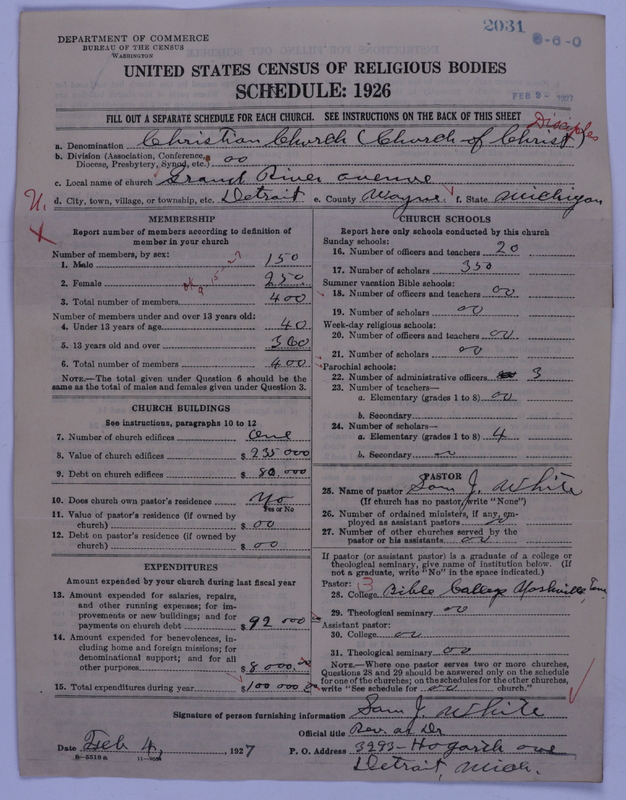 2031
6-6-0
DEPARTMENT OF COMMERCE
BUREAU OF THE CENSUS
WASHINGTON
UNITED STATES CENSUS OF RELIGIOUS BODIES
SCHEDULE: 1926
FEB 9 - 1927
FILL OUT A SEPARATE SCHEDULE FOR EACH CHURCH. SEE INSTRUCTIONS ON THE BACK OF THIS SHEET
Disciples
a. Denomination Christian Church (Church of Christ)
b. Division (Association, Conference, Diocese, Presbytery, Synod, etc.) oo
c. Local name of church Grand River avenue
d. City, town, village, or township, etc. Detroit e. County Wayne f. State Michigan
U.
X
MEMBERSHIP
Report number of members according to definition of
member in your church
Number of members, by sex:
1. Male 150
2. Female 250
3. Total number of members 400
Number of members under and over 13 years old:
4. Under 13 years of age 40
5. 13 years old and over 360
6. Total number of members 400
NOTE.—The total given under Question 6 should be the
same as the total of males and females given under Question 3.
CHURCH BUILDINGS
See instructions, paragraphs 10 to 12
7. Number of church edifices one
8. Value of church edifices $ 235 000
9. Debt on church edifices $ 80 000
10. Does church own pastor's residence No
Yes or No
11. Value of pastor's residence (if owned by
church) $ oo
12. Debt on pastor's residence (if owned by
church) $ oo
EXPENDITURES
Amount expended by your church during last fiscal year
13. Amount expended for salaries, repairs,
and other running expenses; for im-
provements or new buildings; and for
payments on church debt $ 92 000
14. Amount expended for benevolences, in-
cluding home and foreign missions; for
denominational support; and for all
other purposes $ 8 000.
15. Total expenditures during year $ 100 000
CHURCH SCHOOLS
Report here only schools conducted by this church
Sunday schools:
16. Number of officers and teachers 20
17. Number of scholars 350
Summer vacation Bible schools:
18. Number of officers and teachers oo
19. Number of scholars oo
Week-day religious schools:
20. Number of officers and teachers oo
21. Number of scholars oo
Parochial schools:
22. Number of administrative officers 3
23. Number of teachers—
a. Elementary (grades 1 to 8) oo
b. Secondary
24. Number of scholars—
a. Elementary (grades 1 to 8) 4
b. Secondary
PASTOR
25. Name of pastor Sam J. White
(If church has no pastor, write "None")
26. Number of ordained ministers, if any, em-
ployed as assistant pastors
27. Number of other churches served by the
pastor or his assistants oo
If pastor (or assistant pastor) is a graduate of a college or
theological seminary, give name of institution below. (If
not a graduate, write "No" in the space indicated.)
Pastor: 3
28. College Bible College Nashville, Tenn
29. Theological seminary oo
Assistant pastor:
30. College oo
31. Theological seminary oo
NOTE.—Where one pastor serves two or more churches,
Questions 28 and 29 should be answered only on the schedule
for one of the churches; on the schedules for the other churches,
write "See schedule for oo church."
Signature of person furnishing information Sam J. White
Official title Rev. or Dr
Date Feb 4, 1927 P. O. Address 3293- Hogarth ave
8—5518a
Detroit, Mich.